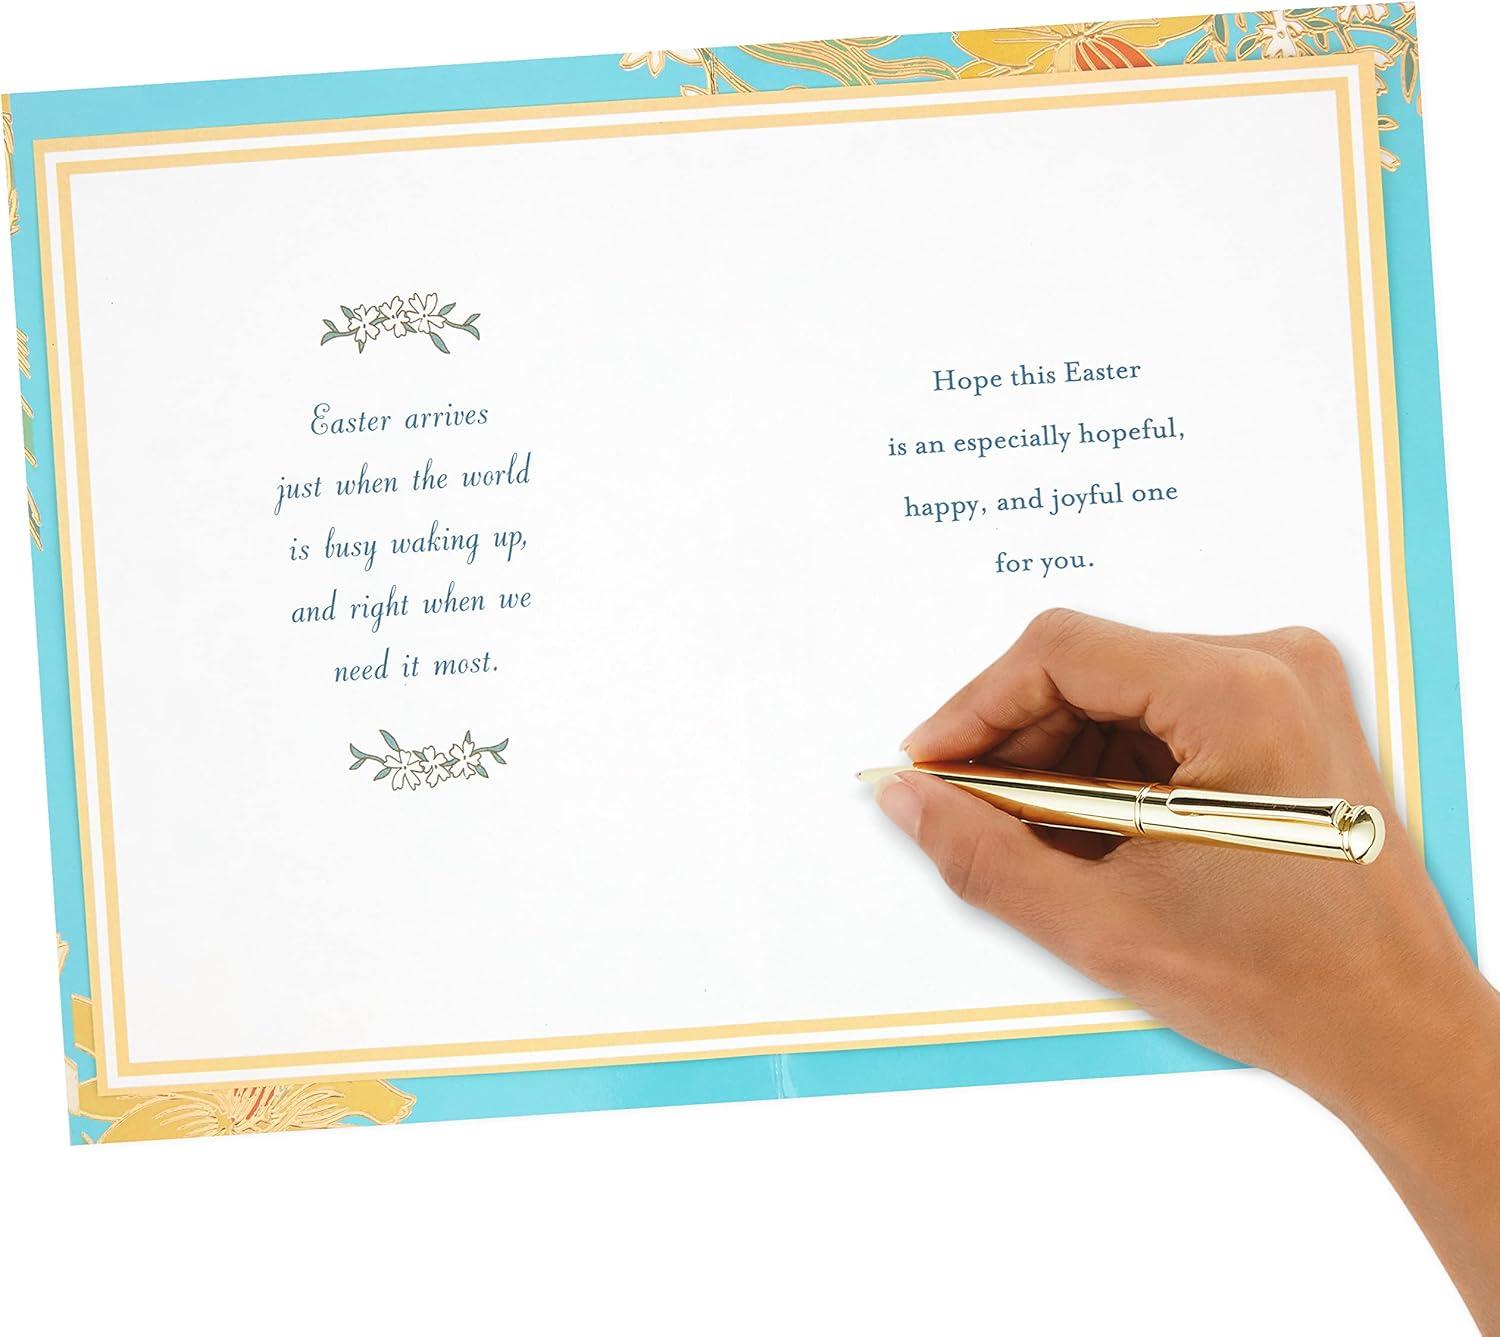 Easter arrives
just when the world
is busy waking up,
and right when we
need it most.
Hope this Easter
is an especially hopeful,
happy, and joyful one
for you.